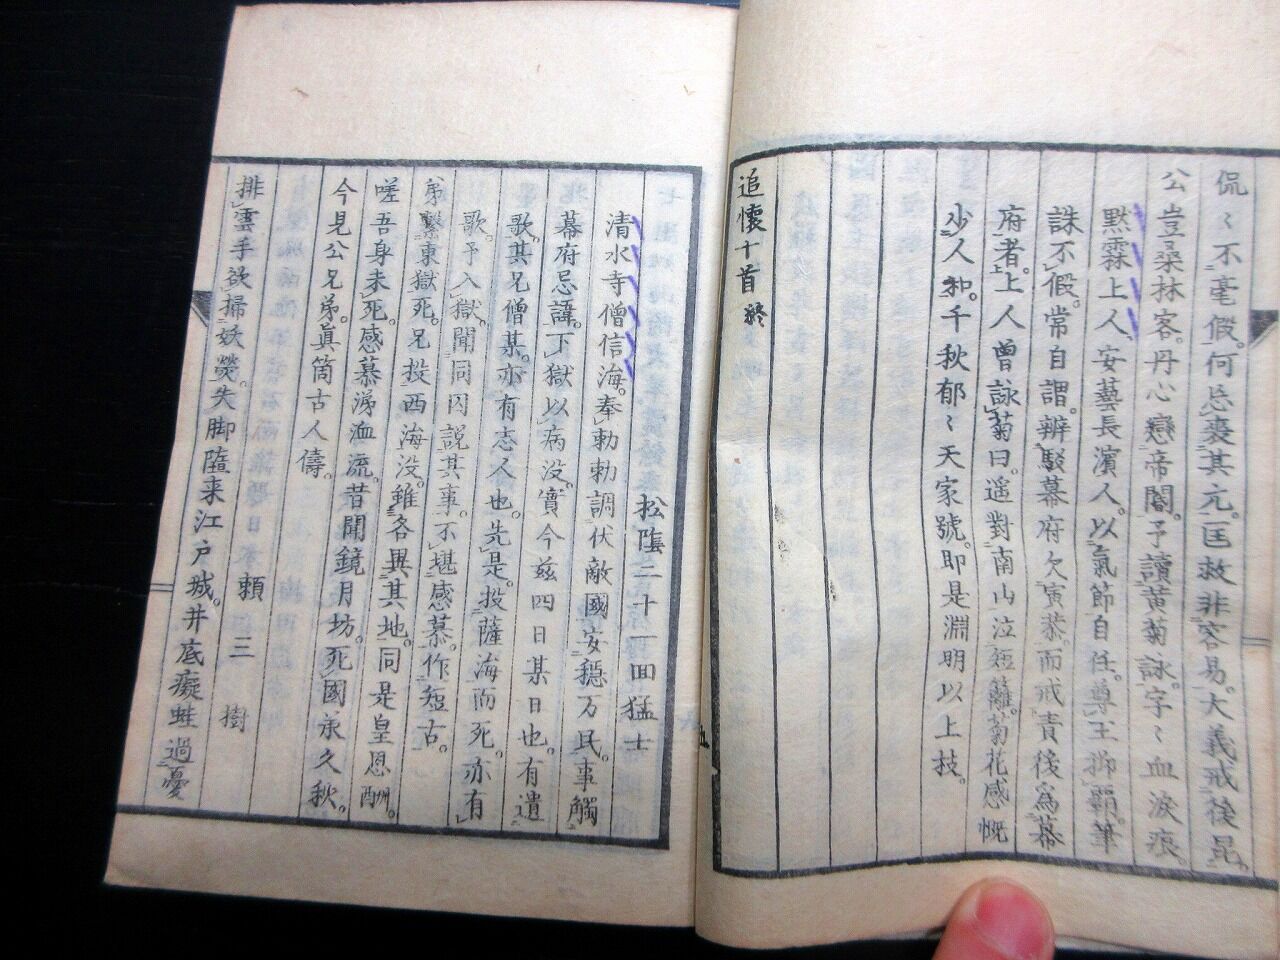 侃〻不毫假。何忘喪其元。匡救非容易。大義戒後昆。
公豈桑林客。丹心戀帝閽。予讀黃菊詠。字〻血淚痕。
默霖上人、安藝長濱人。以氣節自任。尊王抑霸筆
誅不假。常自謂。辨駁幕府欠寅恭。而戒責後爲幕
府者。上人曾詠菊曰。遥對南山泣短籬。菊花感慨
少人知。千秋郁〻天家號。即是淵明以上技。
追懷十首終
松陰二十一回猛士
清水寺僧信海。奉勅勅調伏敵國安穩万民。事觸
幕府忌諱。下獄以病没。實今玆四日某日也。有遺
歌。其兄僧某。亦有志人也。先是。投薩海而死。亦有
歌。予入獄。聞同囚説其事。不堪感慕。作短古。
弟繫東獄死。兄投西海没。雖各異其地。同是皇恩酬。
嗟吾身未死。感慕涕洫流。昔聞鏡月坊。死國承久秋。
今見公兄弟。眞箇古人儔。
頼三樹
排雲手欲掃妖熒。失脚墮来江戸城。井底癡蛙過憂